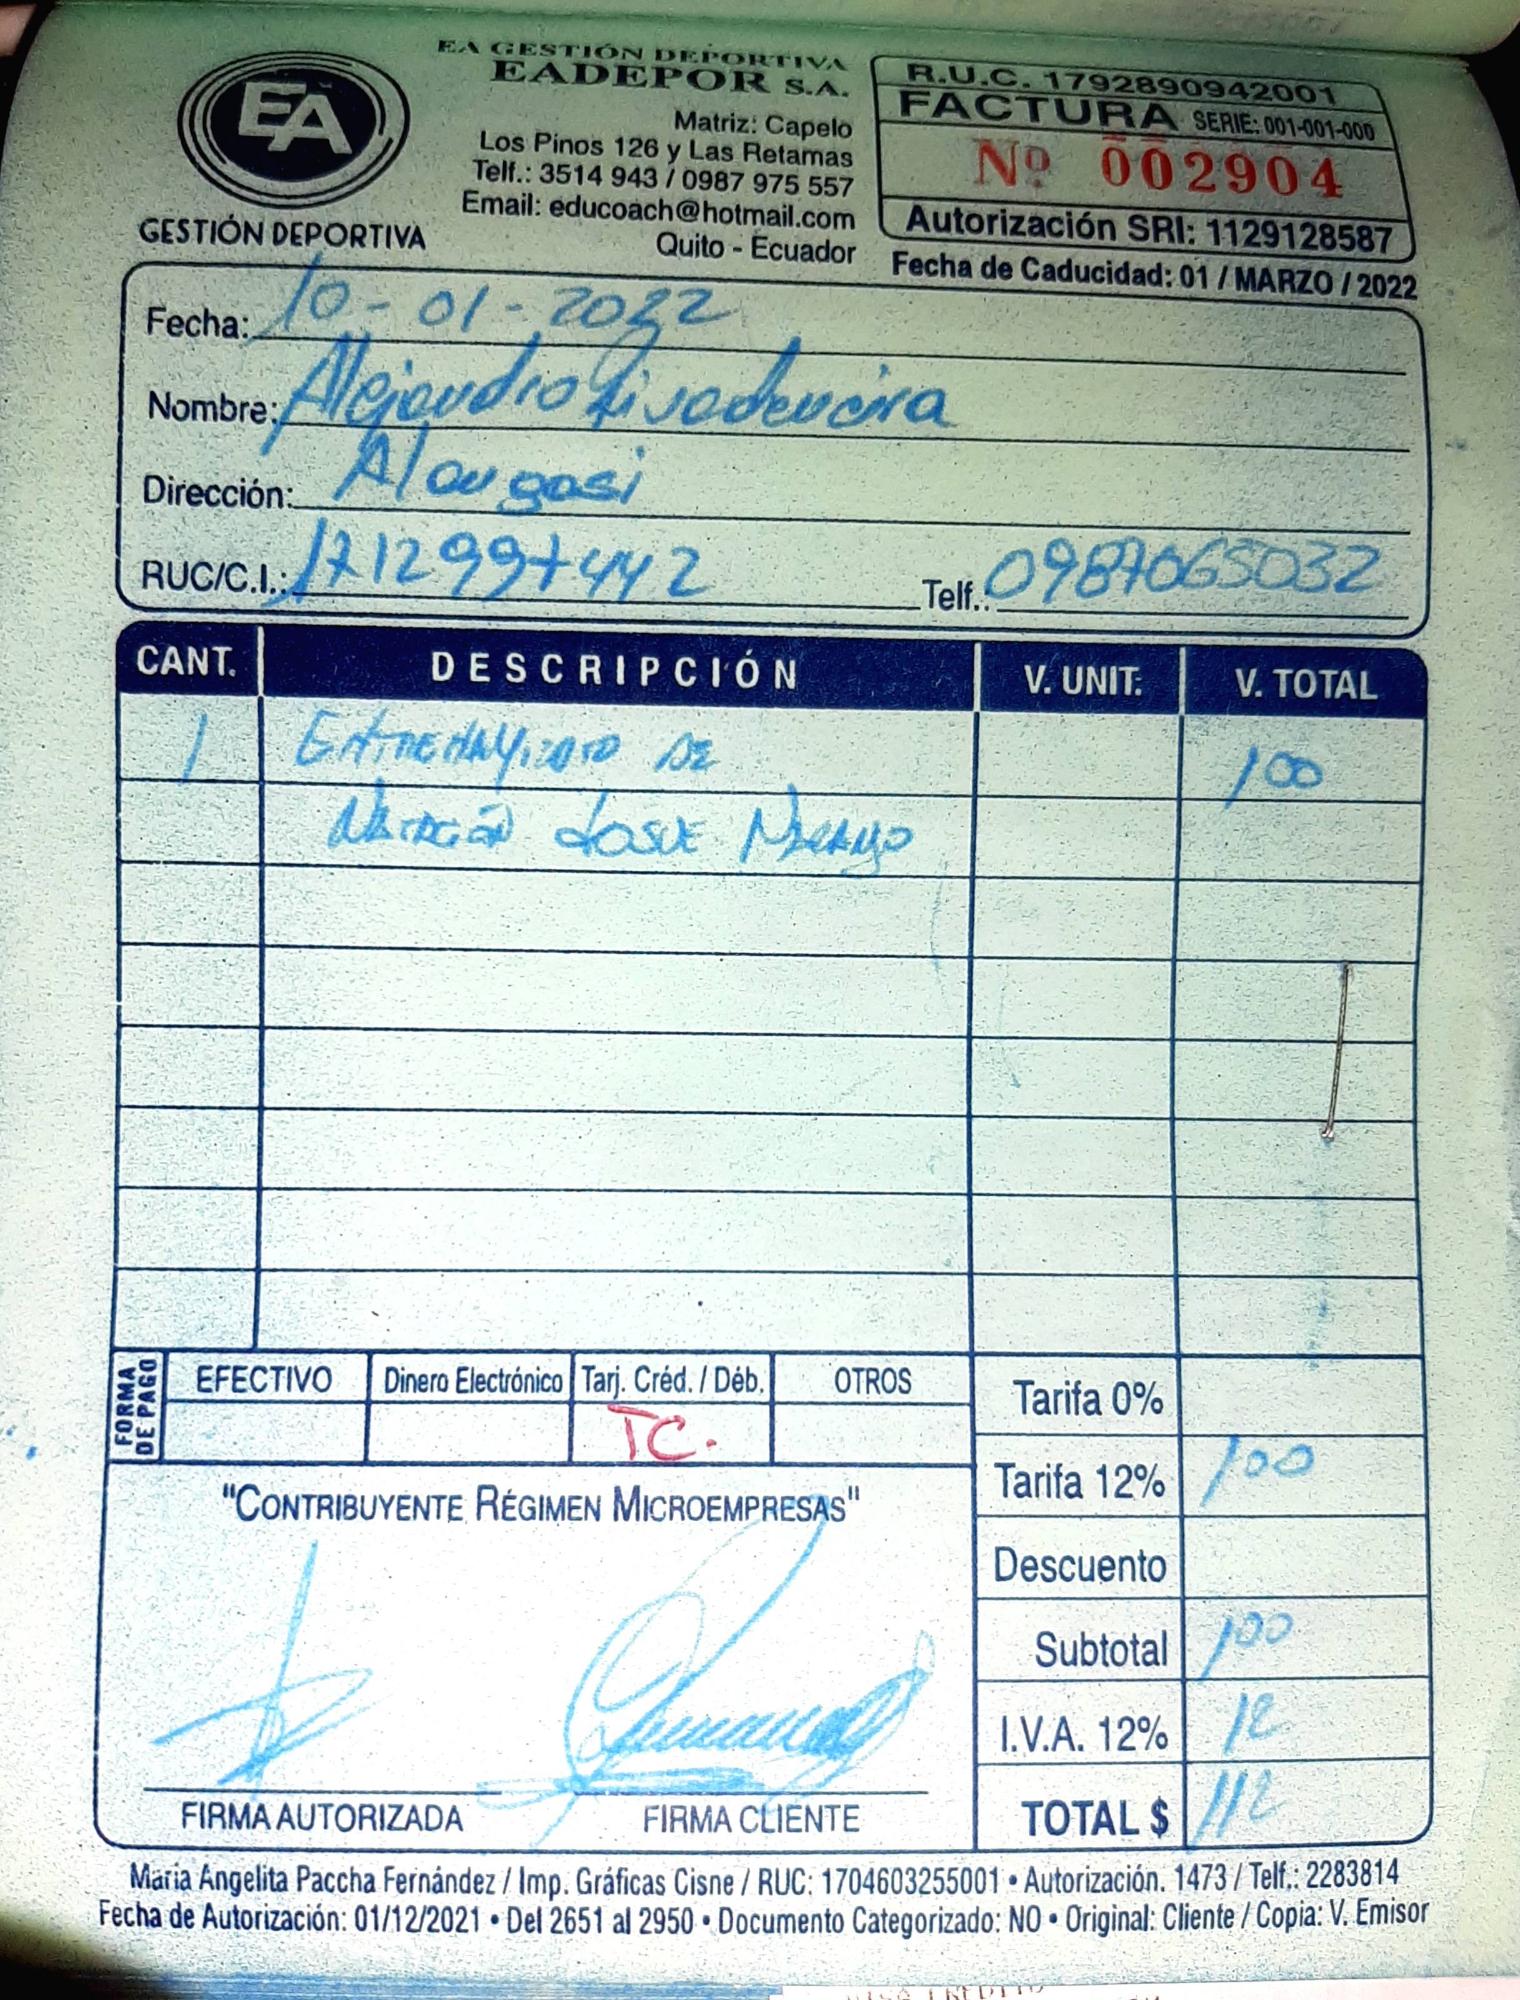 EA
GESTIÓN DEPORTIVA
EA GESTIÓN DEPORTIVA
EADEPOR S.A.
Matriz: Capelo
Los Pinos 126 y Las Retamas
Telf.: 3514 943 / 0987 975 557
Email: educoach@hotmail.com
Quito - Ecuador
R.U.C. 1792890942001
FACTURA SERIE: 001-001-000
Nº 002904
Autorización SRI: 1129128587
Fecha de Caducidad: 01 / MARZO / 2022
Fecha: 10-01-2022
Nombre: Alejandro Rivadeneira
Dirección: Alangasi
RUC/C.I.: 1712997442 Telf.: 0987065032
CANT. DESCRIPCIÓN V. UNIT. V. TOTAL
1 Entrenamiento de 100
Natación Josue Naranjo
FORMA DE PAGO
EFECTIVO Dinero Electrónico Tarj. Créd. / Déb. OTROS
TC.
Tarifa 0%
Tarifa 12% 100
Descuento
Subtotal 100
I.V.A. 12% 12
TOTAL $ 112
"CONTRIBUYENTE RÉGIMEN MICROEMPRESAS"
FIRMA AUTORIZADA FIRMA CLIENTE
María Angelita Paccha Fernández / Imp. Gráficas Cisne / RUC: 1704603255001 • Autorización. 1473 / Telf.: 2283814
Fecha de Autorización: 01/12/2021 • Del 2651 al 2950 • Documento Categorizado: NO • Original: Cliente / Copia: V. Emisor